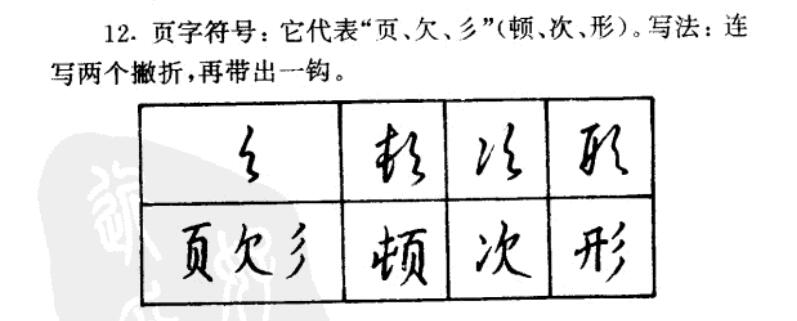 12. 页字符号：它代表“页、欠、彡”(顿、次、形)。写法：连
写两个撇折，再带出一钩。
顿 次 形
页欠彡 顿 次 形